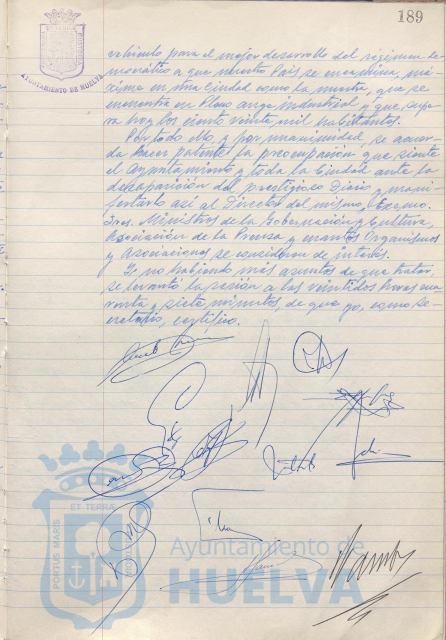 189
AYUNTAMIENTO DE HUELVA
vehículo para el mejor desarrollo del régimen de
mocrático a que nuestro País se encamina, má
xime en una ciudad como la nuestra, que se
encuentra en Pleno auge industrial y que supe
ra hoy los ciento veinte mil habitantes.
Por todo ello y por unanimidad, se acuer
da hacer patente la preocupación que siente
el Ayuntamiento y toda la Ciudad ante la
desaparición del prestigioso Diario y mani
festarlo así al Director del mismo, Excmo.
Sres. Ministros de la Gobernación y Cultura,
Asociación de la Prensa y cuantos Organismos
y Asociaciones se consideren de interés.
Y no habiendo más asuntos de que tratar
se levantó la sesión a las veintidos horas cua
renta y siete minutos, de que yo, como se
cretario, certifico.
ET TERRÆ
PORTUS MARIS
Ayuntamiento de
HUELVA